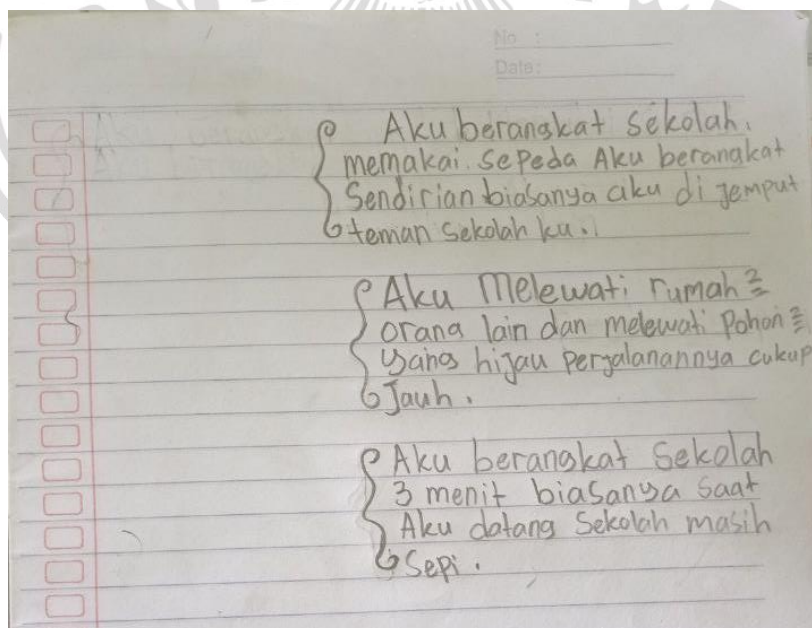 No :
Date:
Aku berangkat sekolah.
memakai sepeda Aku berangkat
Sendirian biasanya aku di jemput
teman sekolah ku.
Aku Melewati rumah²
orang lain dan melewati Pohon²
yang hijau perjalanannya cukup
Jauh.
Aku berangkat Sekolah
3 menit biasanya saat
Aku datang Sekolah masih
Sepi.